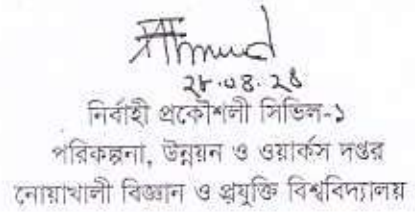 ২৮.০৪.২৪
নির্বাহী প্রকৌশলী সিভিল-১
পরিকল্পনা, উন্নয়ন ও ওয়ার্কস দপ্তর
নোয়াখালী বিজ্ঞান ও প্রযুক্তি বিশ্ববিদ্যালয়